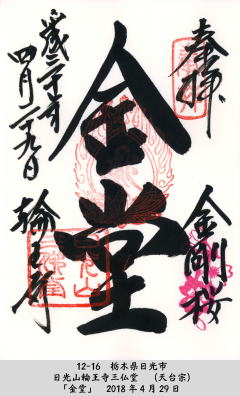 奉拝
金剛桜
金堂
平成三十年
四月二十九日
輪王寺
12-16　栃木県日光市
日光山輪王寺三仏堂　（天台宗）
「金堂」　2018年4月29日